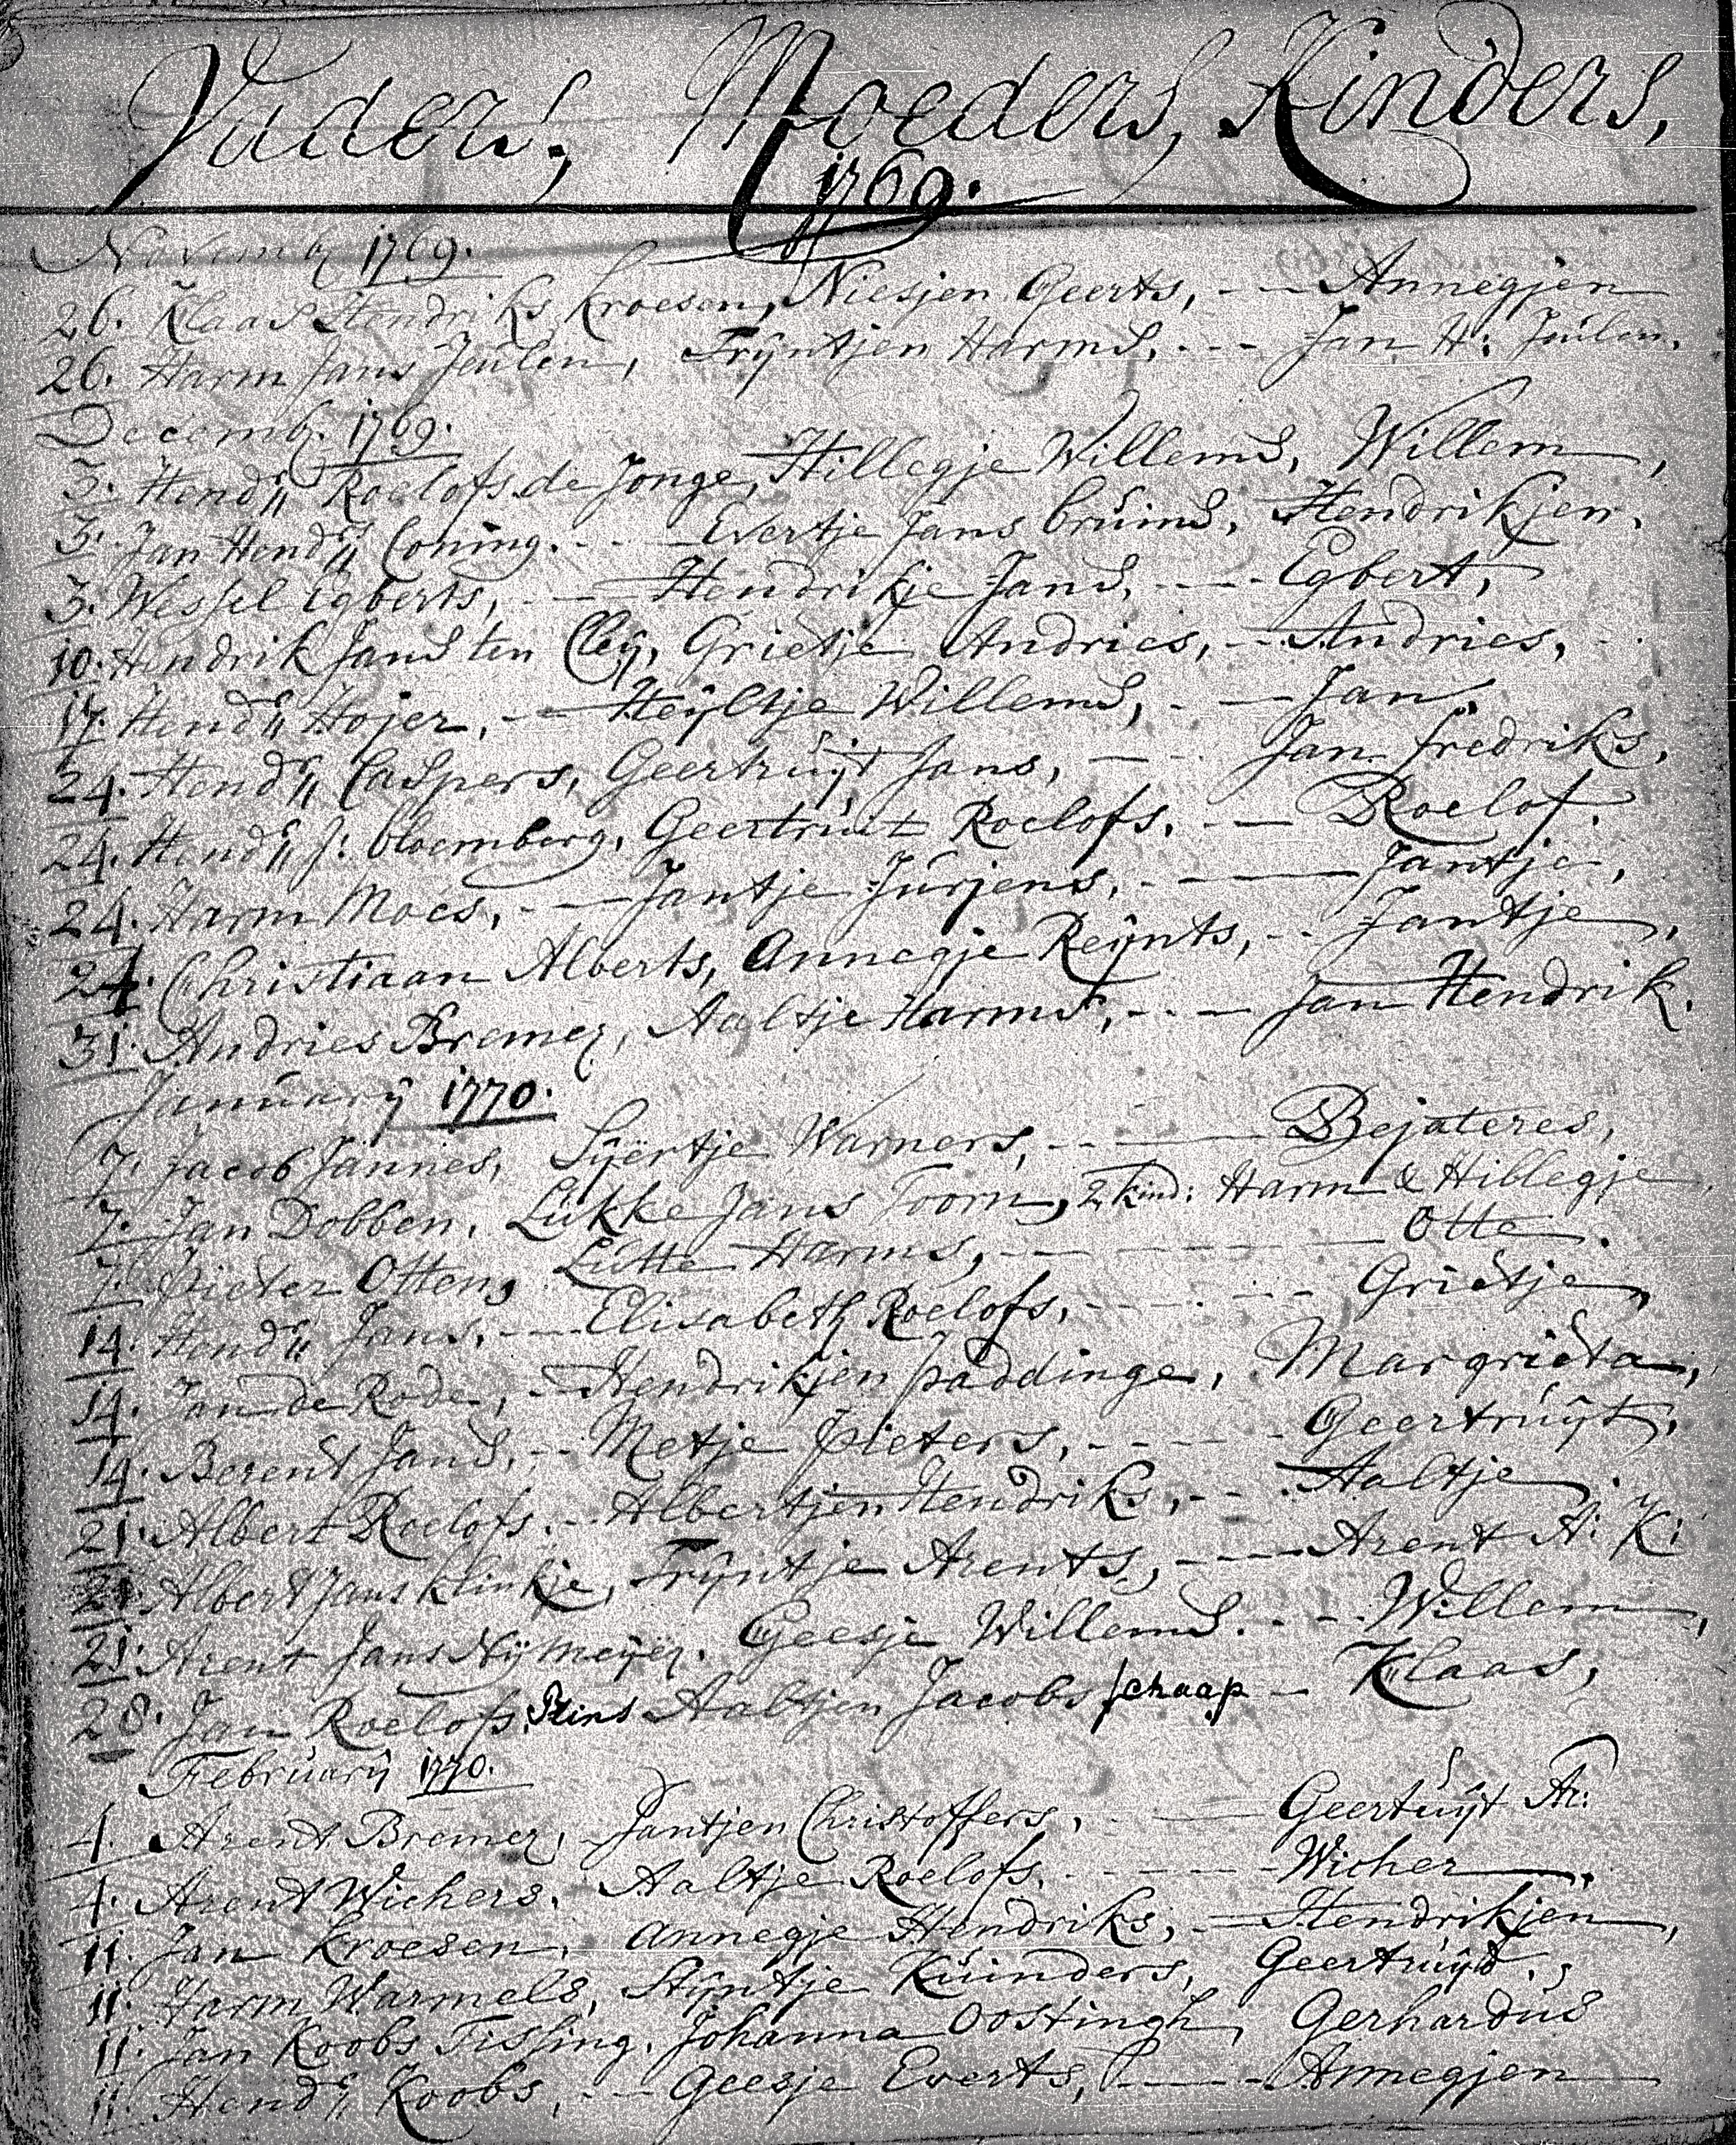 Vaders, Moeders, Kinders,
1769.
Novemb 1769.
26. Klaas Hendriks Kroesen, Niesjen Geerts, -- Annegjen
26. Harm Jans Jeulen, Trÿntjen Harms. --- Jan H: Jeulen.
Decemb. 1769.
3. Hendr Roelofs de Jonge, Hillegje Willems, Willem,
3. Jan Hendr Coning. -- Evertje Jans bruins, Hendrikjen.
3. Wessel Egberts, -- Hendrikje Jans. -- Egbert,
10. Hendrik Jans ten Cleÿ, Grietje Andries, -- Andries,
17. Hendr Hojer, -- Heÿltje Willems, -- Jan,
24. Hendr Caspers, Geertruÿt Jans, -- Jan fredriks,
24. Hendr J: bloemberg, Geertruit Roelofs. -- Roelof.
24. Harm Moes, -- Jantje Jurjens, -- Jantje,
24. Christiaan Alberts, Annegje Reÿnts, -- Jantje,
31. Andries Bremer, Aaltje Harms, -- Jan Hendrik.
Januarÿ 1770.
7. Jacob Jannes, Sÿertje Warners, -- Bejateres,
7. Jan Dobben, Lukke Jans Toorn, 2 kind: Harm & Hillegje,
7. Pieter Otten, Lutte Harms, -- Otte.
14. Hendr Jans, -- Elisabeth Roelofs, -- Grietje,
14. Jan de Rode, -- Hendrikjen paddinge, Margrieta,
14. Berent Jans, -- Metje Pieters, -- Geertruÿt,
21. Albert Roelofs. -- Albertjen Hendriks, -- Aaltje.
21. Albert Jans klinkje, Trÿntje Arents, -- Arent A: K:
21. Arent Jans Nÿmeÿer. Geesje Willems. -- Willem,
28. Jan Roelofs Prins Aaltjen Jacobs schaap -- Klaas,
Februarÿ 1770.
4. Arent Bremer, Jantjen Christoffers, -- Geertuÿt Ar:
4. Arent Wichers, Aaltje Roelofs, -- Wicher,
11. Jan Kroesen, Annegje Hendriks, -- Hendrikjen,
11. Harm Warmels, Stÿntje Kuinders, Geertruÿd.
11. Jan Koobs Tissing, Johanna Oostingh, Gerhardus
11. Hendr Koobs, -- Geesje Everts, -- Annegjen